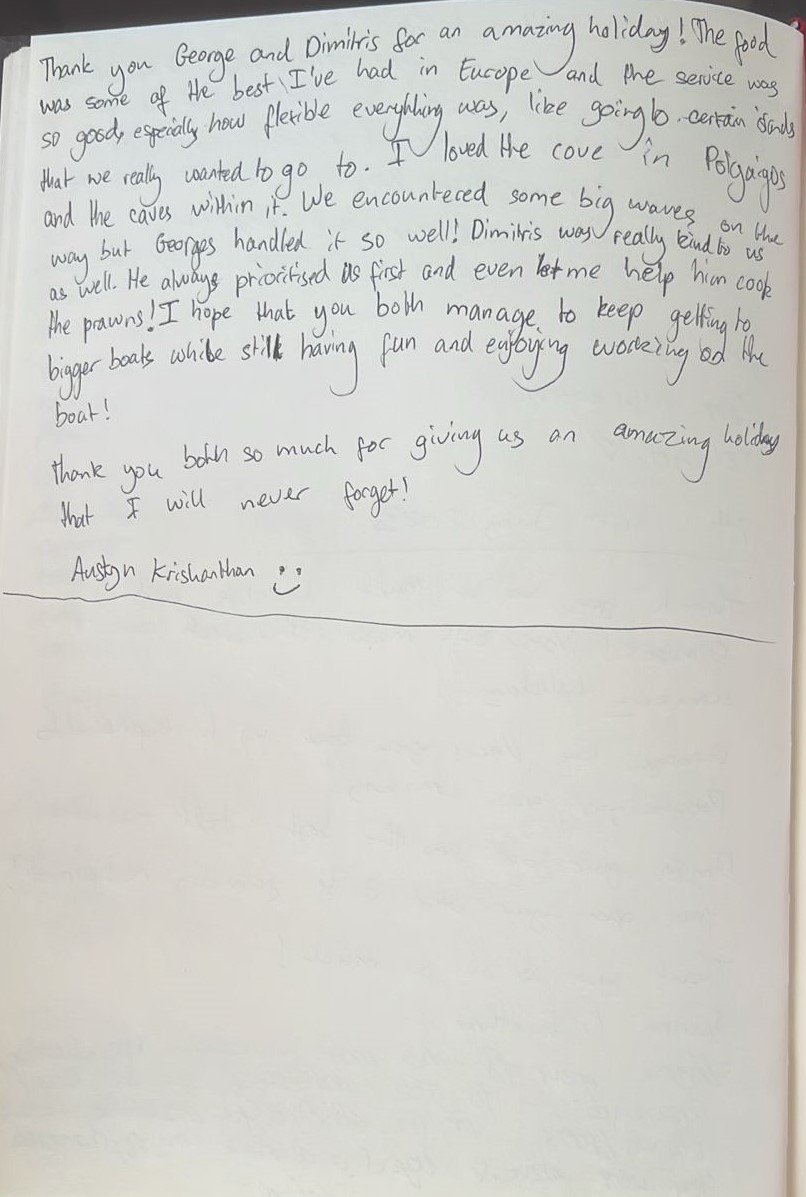 Thank you George and Dimitris for an amazing holiday! The food
was some of the best I've had in Europe and the service was
so good, especially how flexible everything was, like going to certain islands
that we really wanted to go to. I loved the cove in Polgaigos
and the caves within it. We encountered some big waves on the
way but Georges handled it so well! Dimitris was really kind to us
as well. He always prioritised us first and even let me help him cook
the prawns! I hope that you both manage to keep getting to
bigger boats while still having fun and enjoying working on the
boat!
thank you both so much for giving us an amazing holiday
that I will never forget!
Austyn Krishanthan :)